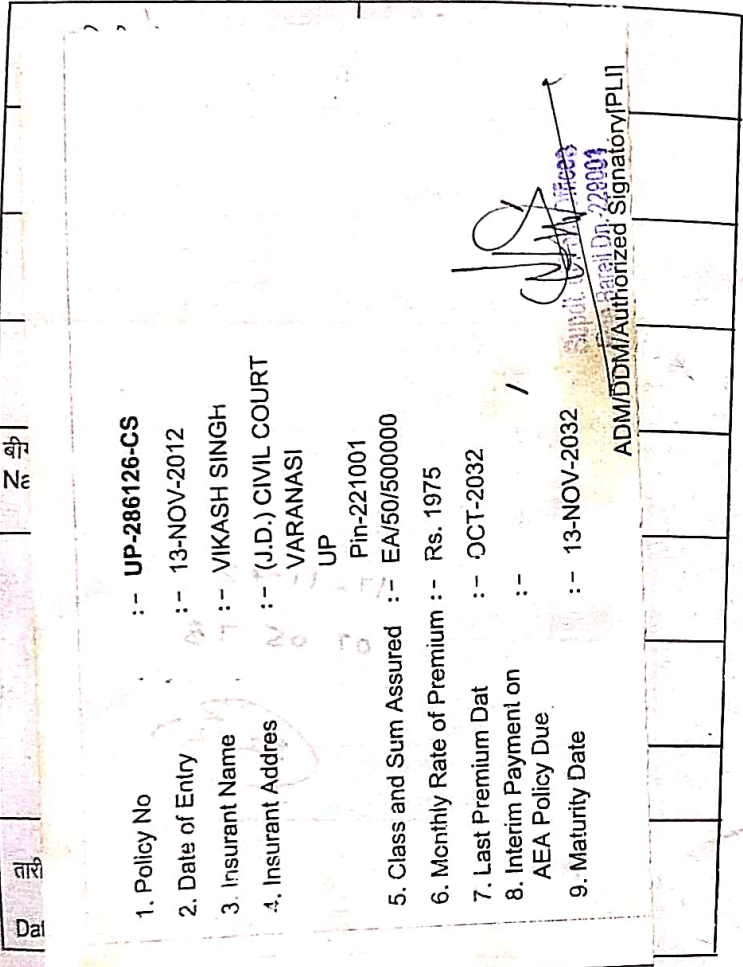 बीम
Na
तारी
Dat
1. Policy No :- UP-286126-CS
2. Date of Entry :- 13-NOV-2012
3. Insurant Name :- VIKASH SINGH
4. Insurant Addres :- (J.D.) CIVIL COURT
VARANASI
UP
Pin-221001
5. Class and Sum Assured :- EA/50/500000
6. Monthly Rate of Premium :- Rs. 1975
7. Last Premium Dat :- OCT-2032
8. Interim Payment on :-
AEA Policy Due
9. Maturity Date :- 13-NOV-2032
Supdt.
Bareli Dn-229001
ADM/DDM/Authorized Signatory[PLI]